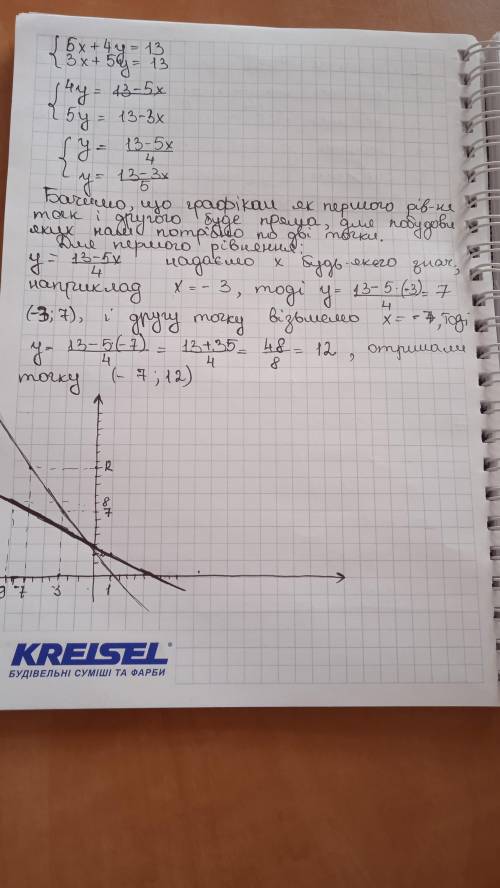 { 5x+4y=13
3x+5y=13
{ 4y = 13-5x
5y = 13-3x
{ y = 13-5x / 4
y = 13-3x / 5
Бачимо, що графікам як першого рів-ня
так і другого буде пряма, для побудови
яких нам потрібно по дві точки.
Для першого рівнення:
y = 13-5x / 4 надаємо x будь-якего знач,
наприклад x = -3, тоді y = 13-5·(-3) / 4 = 7
(-3; 7), і другу точку візьмемо x = -7, тоді
y = 13-5(-7) / 4 = 13+35 / 4 = 48 / 8 = 12, отримали
точку (-7; 12)
12
8
7
9 -7 -3 1
KREISEL®
БУДІВЕЛЬНІ СУМІШІ ТА ФАРБИ